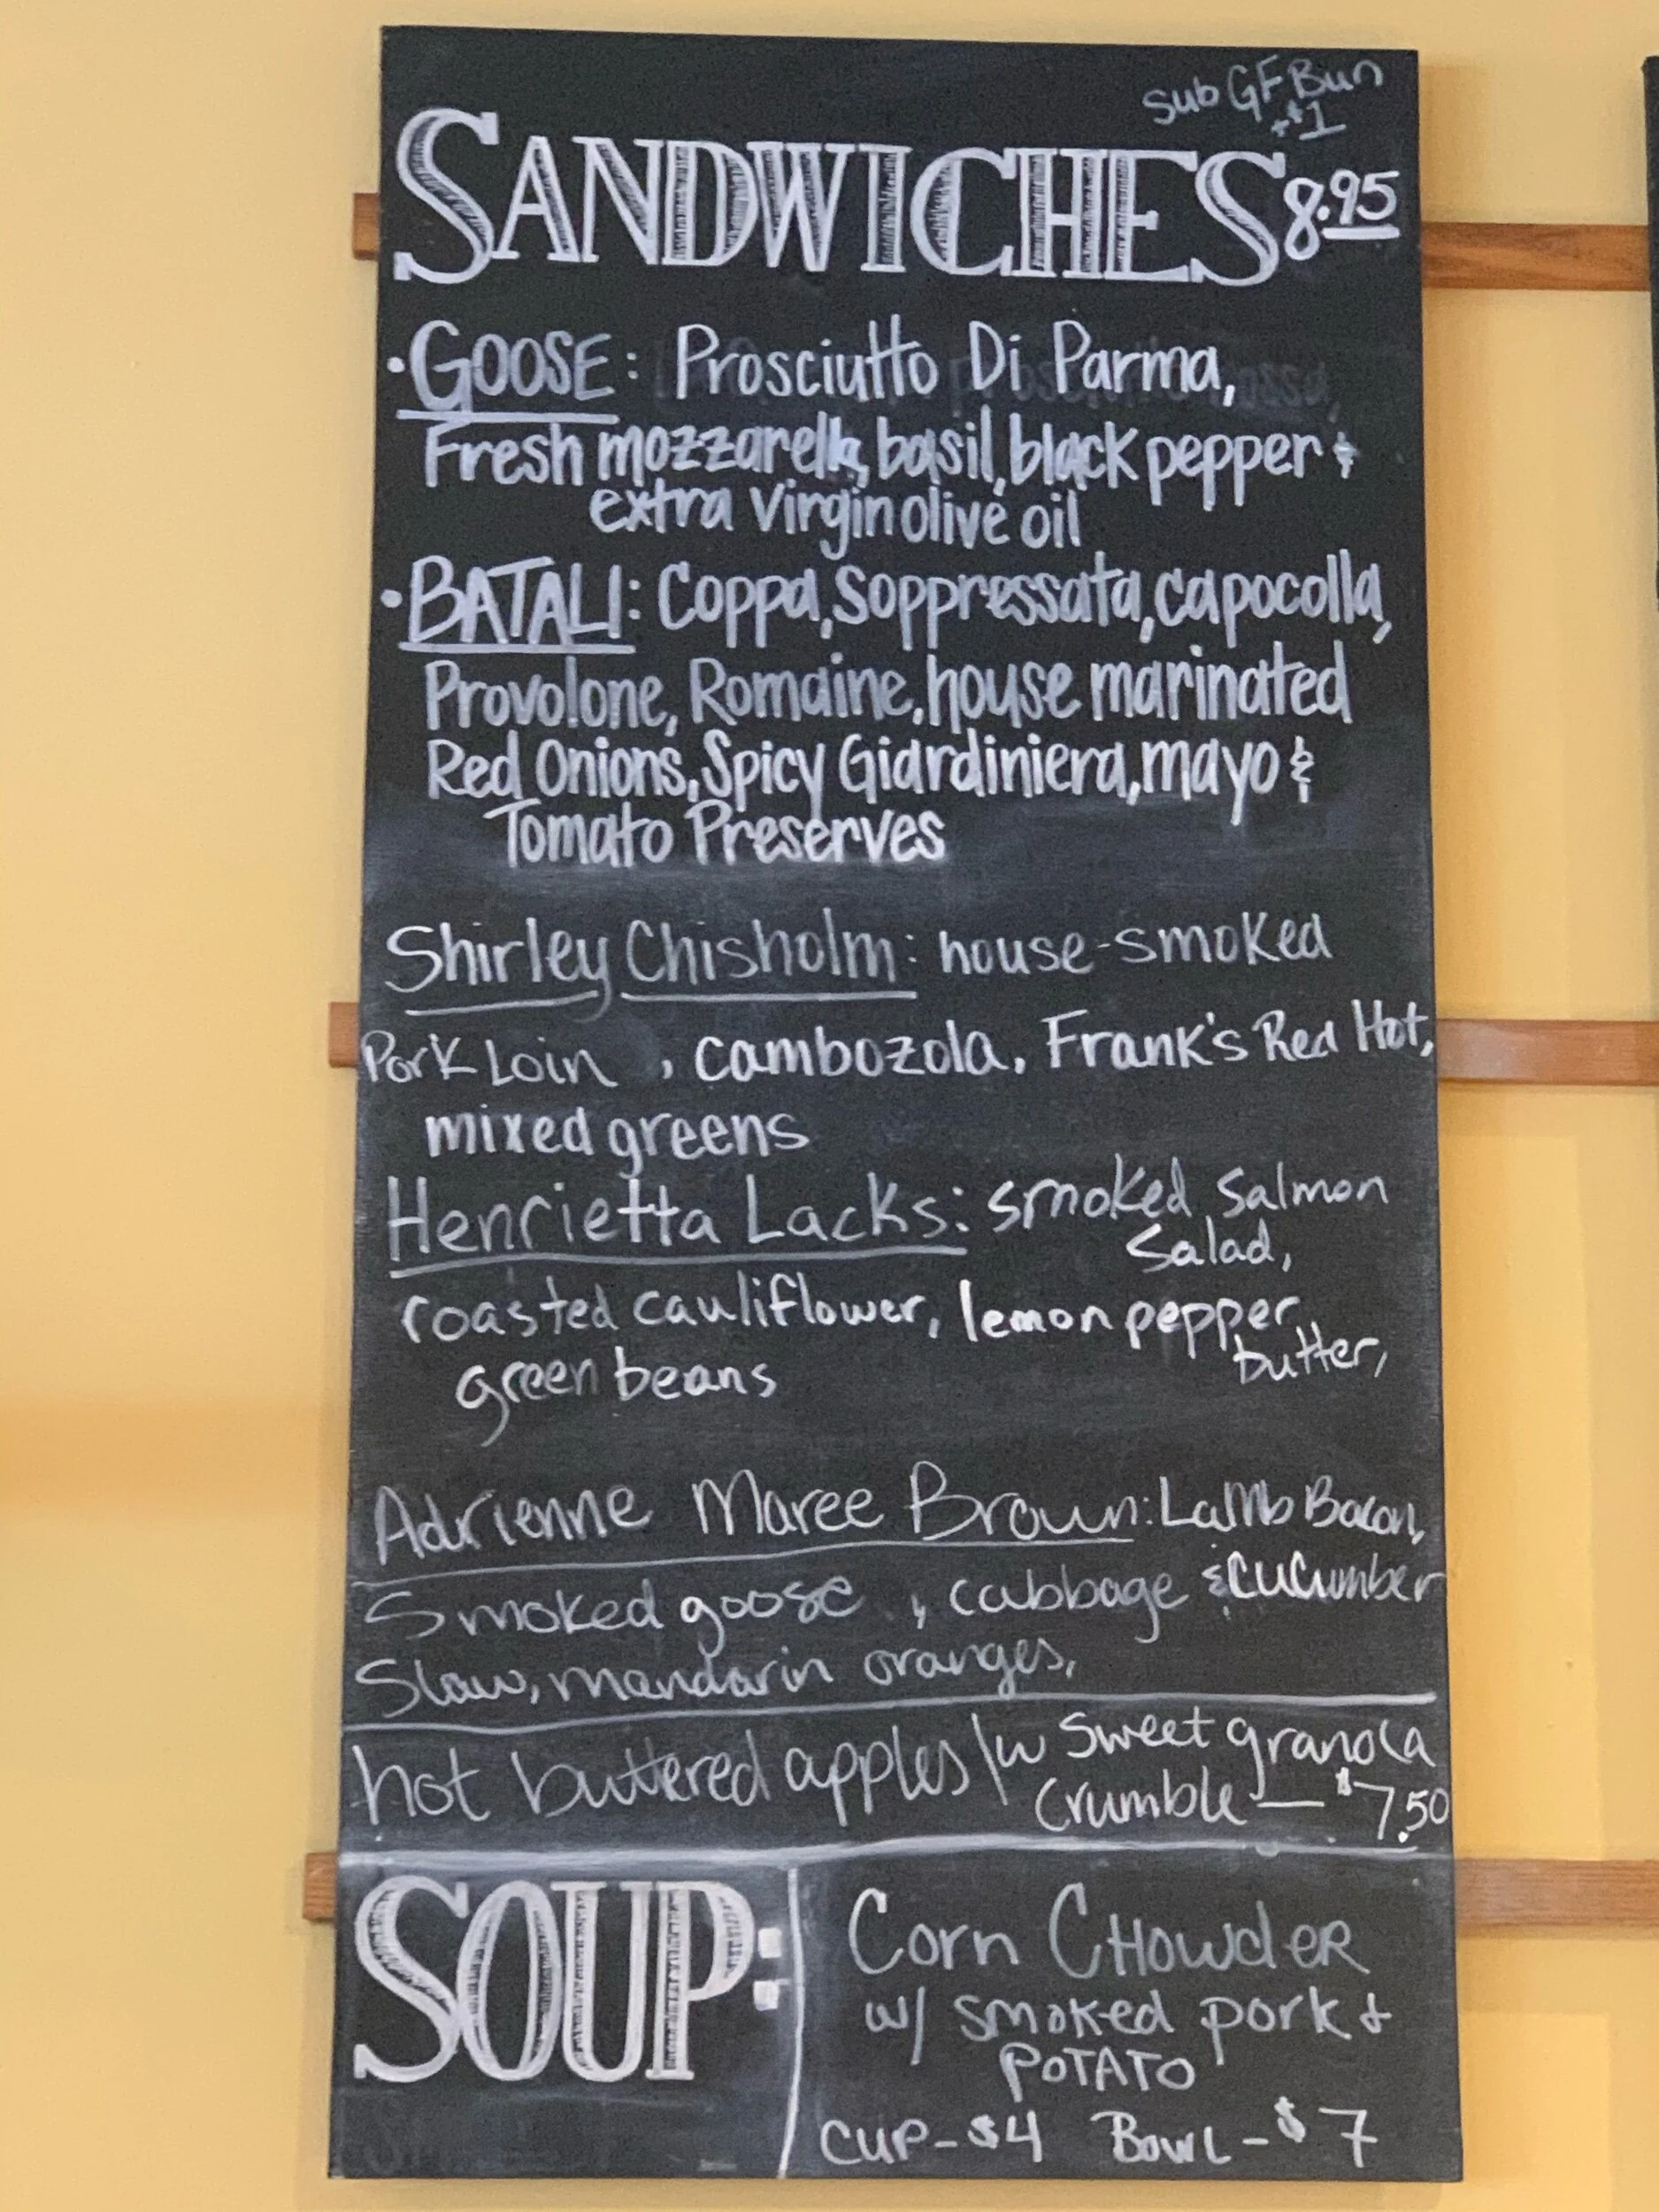 sub GF Bun
+$1
SANDWICHES 8.95
• GOOSE: Prosciutto Di Parma,
Fresh mozzarella, basil, black pepper &
extra virgin olive oil
• BATALI: Coppa, Soppressata, capocolla,
Provolone, Romaine, house marinated
Red Onions, Spicy Giardiniera, mayo &
Tomato Preserves
Shirley Chisholm: house-smoked
Pork Loin , cambozola, Frank's Red Hot,
mixed greens
Henrietta Lacks: smoked salmon
salad,
roasted cauliflower, lemon pepper
butter,
green beans
Adrienne Maree Brown: Lamb Bacon,
Smoked goose , cabbage & cucumber
Slaw, mandarin oranges,
hot buttered apples \w sweet granola
crumble — $7.50
SOUP:
Corn CHowdER
w/ smoked pork &
POTATO
CUP - $4 BowL - $7